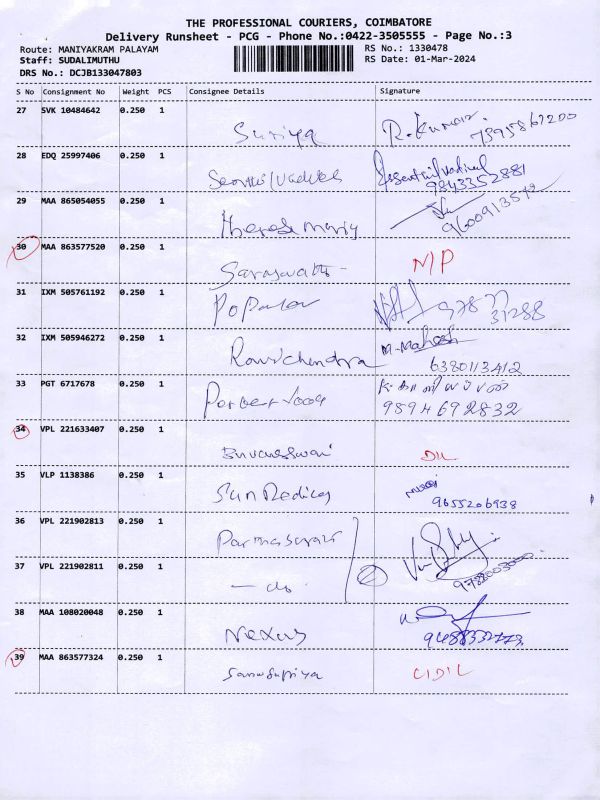 THE PROFESSIONAL COURIERS, COIMBATORE
Delivery Runsheet - PCG - Phone No.:0422-3505555 - Page No.:3
Route: MANIYAKRAM PALAYAM RS No.: 1330478
Staff: SUDALIMUTHU RS Date: 01-Mar-2024
DRS No.: DCJB133047803
S No Consignment No Weight PCS Consignee Details Signature
27 SVK 10484642 0.250 1
Suriya R.Kumar
28 EDQ 25997406 0.250 1
9843352881
29 MAA 865054055 0.250 1
30 MAA 863577520 0.250 1
N/P
31 IXM 505761192 0.250 1
Popular
32 IXM 505946272 0.250 1
Ravichendra M.Mahesh
6380113412
33 PGT 6717678 0.250 1
9894692832
34 VPL 221633407 0.250 1
Buvaneswari D/L
35 VLP 1138386 0.250 1
9655206938
36 VPL 221902813 0.250 1
37 VPL 221902811 0.250 1
- do 2
38 MAA 108020048 0.250 1
Nexus
39 MAA 863577324 0.250 1
C/D/L